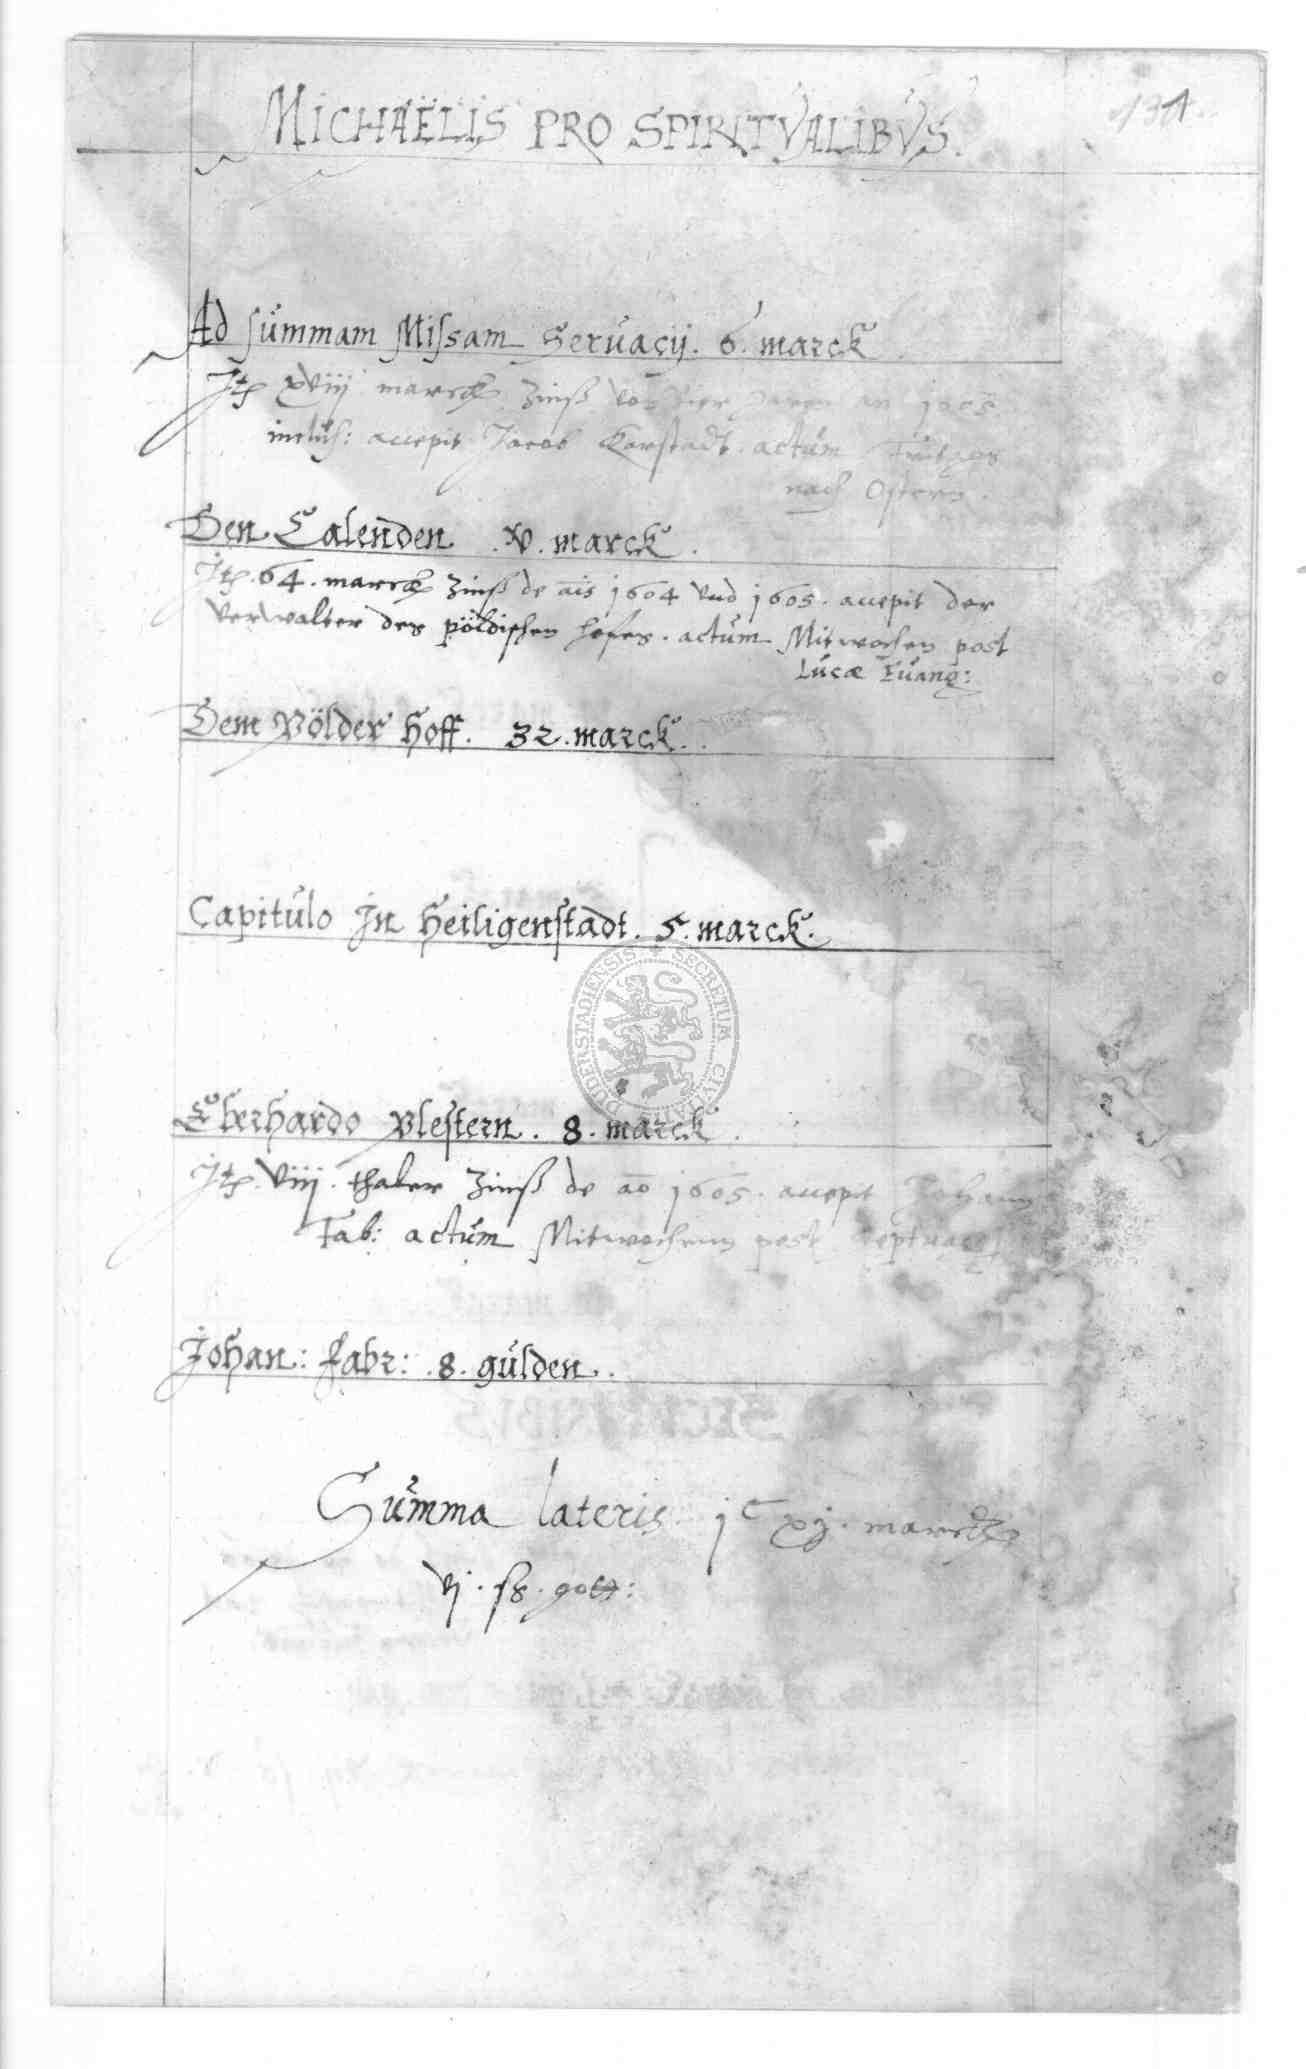 MICHAËLIS PRO SPIRITVALIBVS.
131
Ad summam Missam Seruacij. 6. marck
It xviij marck Zinß von vier Jaren an 1605
inclus: accepit Jacob Karstadt. actum Freitags
nach Ostern.
Den Calenden .v. marck.
It. 64. marck Zinß de ais 1604 vnd 1605. accepit der
verwalter des pöldischen hofes. actum Mitwochen post
Lucæ Euang:
Dem Pölder Hoff. 32. marck.
Capitulo In Heiligenstadt. 5. marck.
DUDERSTADIENSIS SECRETUM CIVITATIS
Eberhardo Vlestern. 8. marck.
It. viij. thaler Zinß de ao 1605. accepit Johann
Fab: actum Mitwochenn post Septuages
Johan: fabr: .8. gülden.
Summa lateris jc xj. marck
vj. ß. gott: